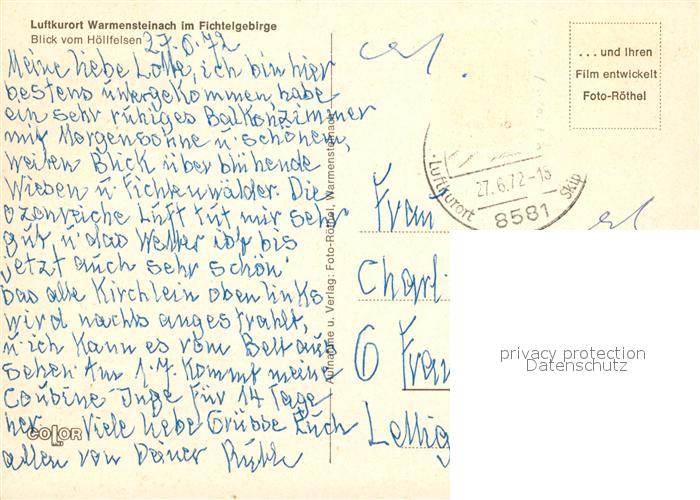 Luftkurort Warmensteinach im Fichtelgebirge
Blick vom Höllfelsen
27.6.72
Meine liebe Lotte, ich bin hier
bestens untergekommen, habe
ein sehr ruhiges Balkonzimmer
mit Morgensonne u. schönem,
weiten Blick über blühende
Wiesen u. Fichtenwälder. Die
ozonreiche Luft tut mir sehr
gut, u. das Wetter ist bis
jetzt auch sehr schön.
Das alte Kirchlein oben links
wird nachts angestrahlt,
u. ich kann es vom Bett aus
sehen. Am 1.7. kommt meine
Cousine Inge für 14 Tage
her. Viele liebe Grüsse Euch
allen von Deiner
COLOR
Aufnahme u. Verlag: Foto-Röthel, Warmensteinach
... und Ihren
Film entwickelt
Foto-Röthel
Luftkurort
27.6.72-16
8581
Frau
Charl
6 Fran
privacy protection
Datenschutz